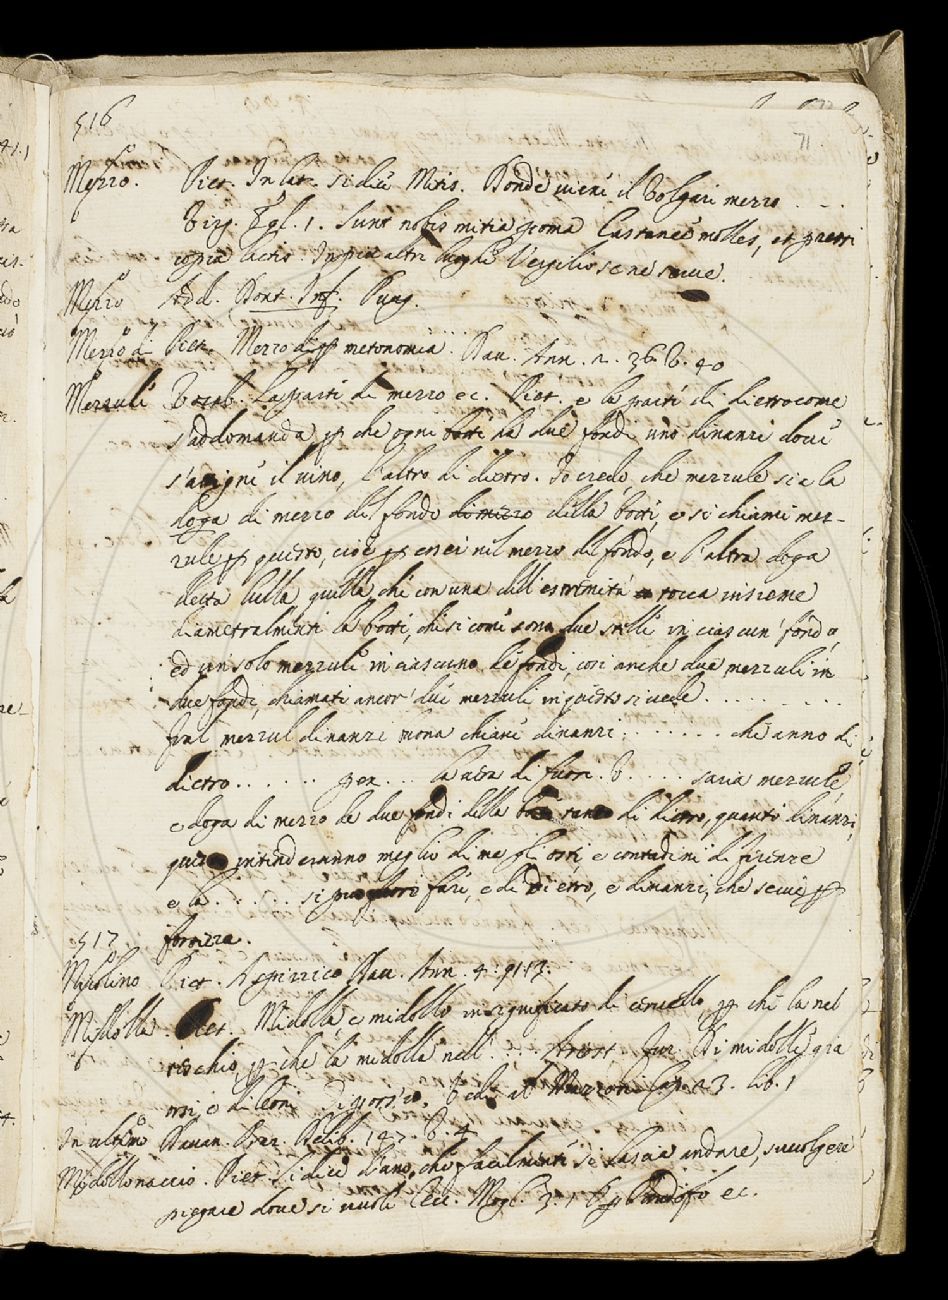 516
71
Mezzo. Piet. In lat. si dice Mitis. Donde viene il Volgar mezzo ....
Virg. Egl. 1. Sunt nobis mitia poma Castaneę molles, et pressi
copia lactis. In più altri luoghi Vergilio se ne serve.
Mezzo Add. Dant. Inf. Purg.
Mezzo di Piet. Mezzo di ꝑ metonomia. Dav. Ann. 2. 36. V. 40
Mezzule Vocab. La parte di mezzo ec. Piet. e la parte di dietro come
s'addomanda ꝑ che ogni botte ha due fondi uno dinanzi dove
s'attigne il vino, l'altro di dietro. Io credo, che mezzule sia la
doga di mezzo del fondo di mezzo della botte, e si chiami mez-
zule ꝑ questo, cioè ꝑ esser nel mezzo del fondo, e l'altra doga
detta lulla, quella che con una dell'estremità tocca insieme
diametralmente la botte, che si come sono due lulle in ciascun fondo,
ed un solo mezzule in ciascuno de fondi, così anche due mezzuli in
due fondi, chiamati ancor' due mezzuli in questo si vede ..........
fral mezzul dinanzi mona chiave dinanzi ....... che anno di
dietro ...... gen ... la aira di fuori. V ..... saria mezzule,
e doga di mezzo de due fondi delle botti tanto di dietro, quanto dinanzi,
questo intenderanno meglio di me gl'osti, e contadini di firenze
e la ...... si fare, e di dietro, e dinanzi, che serve ꝑ
fortezza.
517
Midolla . Piet. Midolla, e midollo in significato di cervello, ꝑ che la nel
teschio, ꝑ che la midolla nell' ... Ariost. fur. Di midolle gia
d'orsi, e di leoni Cap. 23. lib. 1
In ultimo Davan. 147. V. 4
Midollonaccio. Piet. Si dice d'uno, che facilmente si lascia andare, svolgere
piegare dove si vuole Cecc. Mogl. 3. 1 ec.